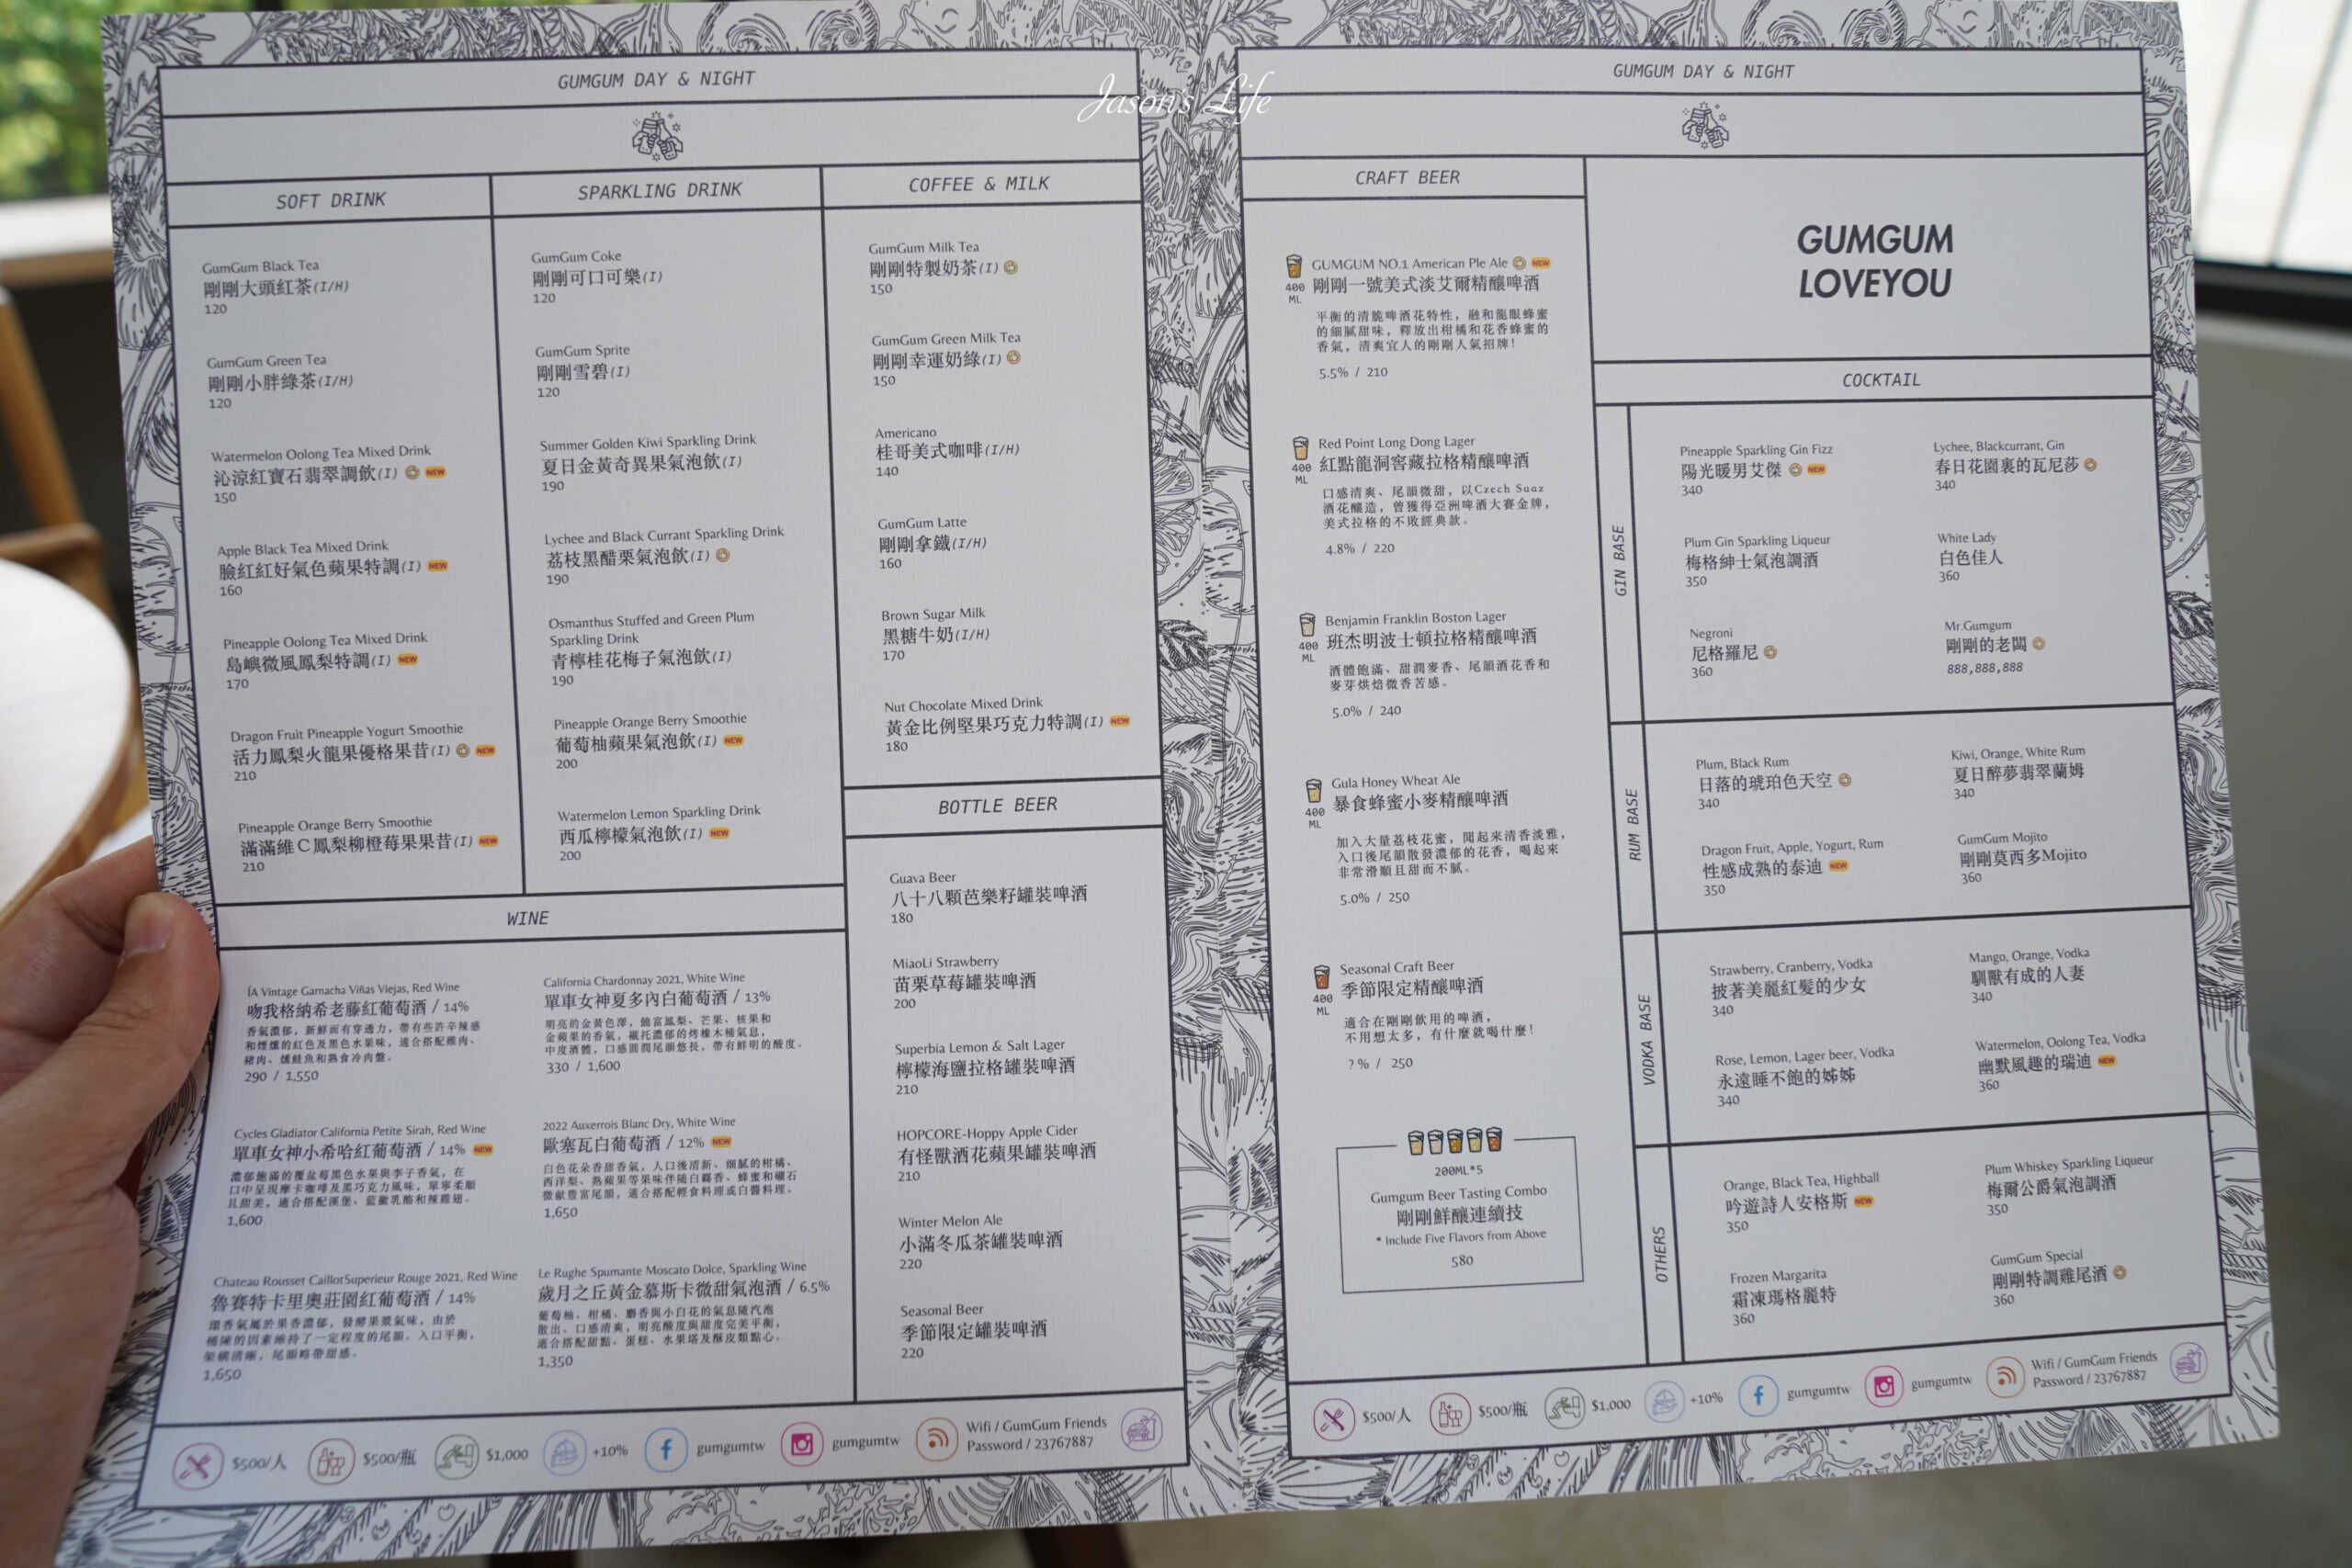 Jason's Life
GUMGUM DAY & NIGHT
SOFT DRINK
GumGum Black Tea
剛剛大頭紅茶(I/H)
120
GumGum Green Tea
剛剛小胖綠茶(I/H)
120
Watermelon Oolong Tea Mixed Drink
沁涼紅寶石翡翠調飲(I) NEW
150
Apple Black Tea Mixed Drink
臉紅紅好氣色蘋果特調(I) NEW
160
Pineapple Oolong Tea Mixed Drink
島嶼微風鳳梨特調(I) NEW
170
Dragon Fruit Pineapple Yogurt Smoothie
活力鳳梨火龍果優格果昔(I) NEW
210
Pineapple Orange Berry Smoothie
滿滿維C鳳梨柳橙莓果果昔(I) NEW
210
SPARKLING DRINK
GumGum Coke
剛剛可口可樂(I)
120
GumGum Sprite
剛剛雪碧(I)
120
Summer Golden Kiwi Sparkling Drink
夏日金黃奇異果氣泡飲(I)
190
Lychee and Black Currant Sparkling Drink
荔枝黑醋栗氣泡飲(I)
190
Osmanthus Stuffed and Green Plum
Sparkling Drink
青檸桂花梅子氣泡飲(I)
190
Pineapple Orange Berry Smoothie
葡萄柚蘋果氣泡飲(I) NEW
200
Watermelon Lemon Sparkling Drink
西瓜檸檬氣泡飲(I) NEW
200
COFFEE & MILK
GumGum Milk Tea
剛剛特製奶茶(I)
150
GumGum Green Milk Tea
剛剛幸運奶綠(I)
150
Americano
桂哥美式咖啡(I/H)
140
GumGum Latte
剛剛拿鐵(I/H)
160
Brown Sugar Milk
黑糖牛奶(I/H)
170
Nut Chocolate Mixed Drink
黃金比例堅果巧克力特調(I) NEW
180
WINE
ÍA Vintage Garnacha Viñas Viejas, Red Wine
吻我格納希老藤紅葡萄酒 / 14%
香氣濃郁，新鮮而有穿透力，帶有些許辛辣感
和煙燻的紅色及黑色水果味，適合搭配雞肉、
豬肉、燻鮭魚和熟食冷肉盤。
290 / 1,550
Cycles Gladiator California Petite Sirah, Red Wine
單車女神小希哈紅葡萄酒 / 14% NEW
濃郁飽滿的覆盆莓黑色水果與李子香氣，在
口中呈現摩卡咖啡及黑巧克力風味，單寧柔順
且甜美，適合搭配漢堡、藍黴乳酪和辣雞翅。
1,600
Chateau Rousset CaillotSuperieur Rouge 2021, Red Wine
魯賽特卡里奧莊園紅葡萄酒 / 14%
環香氣屬於果香濃郁，發酵果漿氣味，由於
桶陳的因素維持了一定程度的尾韻。入口平衡，
架構清晰，尾韻略帶甜感。
1,650
California Chardonnay 2021, White Wine
單車女神夏多內白葡萄酒 / 13%
明亮的金黃色澤，饒富鳳梨、芒果、核果和
金蘋果的香氣，襯托濃郁的烤橡木桶氣息，
中度酒體，口感圓潤尾韻悠長，帶有鮮明的酸度。
330 / 1,600
2022 Auxerrois Blanc Dry, White Wine
歐塞瓦白葡萄酒 / 12% NEW
白色花朵香甜香氣，入口後清新、細膩的柑橘、
西洋梨、熟蘋果等果味伴隨白麝香、蜂蜜和礦石
微獻豐富尾韻，適合搭配輕食料理或白醬料理。
1,650
Le Rughe Spumante Moscato Dolce, Sparkling Wine
歲月之丘黃金慕斯卡微甜氣泡酒 / 6.5%
葡萄柚、柑橘、麝香與小白花的氣息隨汽泡
散出。口感清爽，明亮酸度與甜度完美平衡，
適合搭配甜點、蛋糕、水果塔及酥皮類點心。
1,350
BOTTLE BEER
Guava Beer
八十八顆芭樂籽罐裝啤酒
180
MiaoLi Strawberry
苗栗草莓罐裝啤酒
200
Superbia Lemon & Salt Lager
檸檬海鹽拉格罐裝啤酒
210
HOPCORE-Hoppy Apple Cider
有怪獸酒花蘋果罐裝啤酒
210
Winter Melon Ale
小滿冬瓜茶罐裝啤酒
220
Seasonal Beer
季節限定罐裝啤酒
220
$500/人
$500/瓶
$1,000
+10%
gumgumtw
gumgumtw
Wifi / GumGum Friends
Password / 23767887
GUMGUM DAY & NIGHT
CRAFT BEER
400
ML
GUMGUM NO.1 American Ple Ale NEW
剛剛一號美式淡艾爾精釀啤酒
平衡的清脆啤酒花特性，融和龍眼蜂蜜
的細膩甜味，釋放出柑橘和花香蜂蜜的
香氣，清爽宜人的剛剛人氣招牌！
5.5% / 210
400
ML
Red Point Long Dong Lager
紅點龍洞窖藏拉格精釀啤酒
口感清爽、尾韻微甜，以Czech Saaz
酒花釀造，曾獲得亞洲啤酒大賽金牌，
美式拉格的不敗經典款。
4.8% / 220
400
ML
Benjamin Franklin Boston Lager
班杰明波士頓拉格精釀啤酒
酒體飽滿、甜潤麥香、尾韻酒花香和
麥芽烘焙微香苦感。
5.0% / 240
400
ML
Gula Honey Wheat Ale
暴食蜂蜜小麥精釀啤酒
加入大量荔枝花蜜，聞起來清香淡雅，
入口後尾韻散發濃郁的花香，喝起來
非常滑順且甜而不膩。
5.0% / 250
400
ML
Seasonal Craft Beer
季節限定精釀啤酒
適合在剛剛飲用的啤酒，
不用想太多，有什麼就喝什麼！
?% / 250
200ML*5
Gumgum Beer Tasting Combo
剛剛鮮釀連續技
* Include Five Flavors from Above
580
GUMGUM
LOVEYOU
COCKTAIL
GIN BASE
Pineapple Sparkling Gin Fizz
陽光暖男艾傑 NEW
340
Lychee, Blackcurrant, Gin
春日花園裏的瓦尼莎
340
Plum Gin Sparkling Liqueur
梅格紳士氣泡調酒
350
White Lady
白色佳人
360
Negroni
尼格羅尼
360
Mr.Gumgum
剛剛的老闆
888,888,888
RUM BASE
Plum, Black Rum
日落的琥珀色天空
340
Kiwi, Orange, White Rum
夏日醉夢翡翠蘭姆
340
Dragon Fruit, Apple, Yogurt, Rum
性感成熟的泰迪 NEW
350
GumGum Mojito
剛剛莫西多Mojito
360
VODKA BASE
Strawberry, Cranberry, Vodka
披著美麗紅髮的少女
340
Mango, Orange, Vodka
馴獸有成的人妻
340
Rose, Lemon, Lager beer, Vodka
永遠睡不飽的姊姊
340
Watermelon, Oolong Tea, Vodka
幽默風趣的瑞迪 NEW
360
OTHERS
Orange, Black Tea, Highball
吟遊詩人安格斯 NEW
350
Plum Whiskey Sparkling Liqueur
梅爾公爵氣泡調酒
350
Frozen Margarita
霜凍瑪格麗特
360
GumGum Special
剛剛特調雞尾酒
360
$500/人
$500/瓶
$1,000
+10%
gumgumtw
gumgumtw
Wifi / GumGum Friends
Password / 23767887